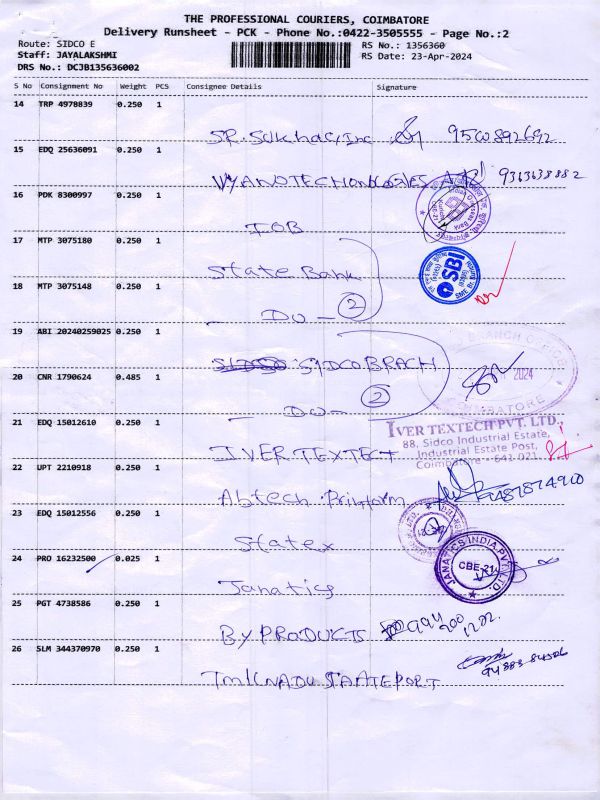 THE PROFESSIONAL COURIERS, COIMBATORE
Delivery Runsheet - PCK - Phone No.:0422-3505555 - Page No.:2
Route: SIDCO E
RS No.: 1356360
Staff: JAYALAKSHMI
RS Date: 23-Apr-2024
DRS No.: DCJB135636002
S No Consignment No Weight PCS Consignee Details Signature
14 TRP 4978839 0.250 1
9500892692
15 EDQ 25636091 0.250 1
9363638882
16 PDK 8300997 0.250 1
IOB
17 MTP 3075180 0.250 1
State Bank
SBI
18 MTP 3075148 0.250 1
Do 2
19 ABI 20240259025 0.250 1
SIDCO BRACH
2024
COIMBATORE
20 CNR 1790624 0.485 1
Do 2
21 EDQ 15012610 0.250 1
IVER TEXTECT
IVER TEXTECH PVT. LTD.,
88, Sidco Industrial Estate,
Industrial Estate Post,
Coimbatore - 641 021.
22 UPT 2210918 0.250 1
Abtech
23 EDQ 15012556 0.250 1
Statex
24 PRO 16232500 0.025 1
Janatics
JANATICS INDIA PVT. LTD.
CBE-21
25 PGT 4738586 0.250 1
BY PRODUCTS
26 SLM 344370970 0.250 1